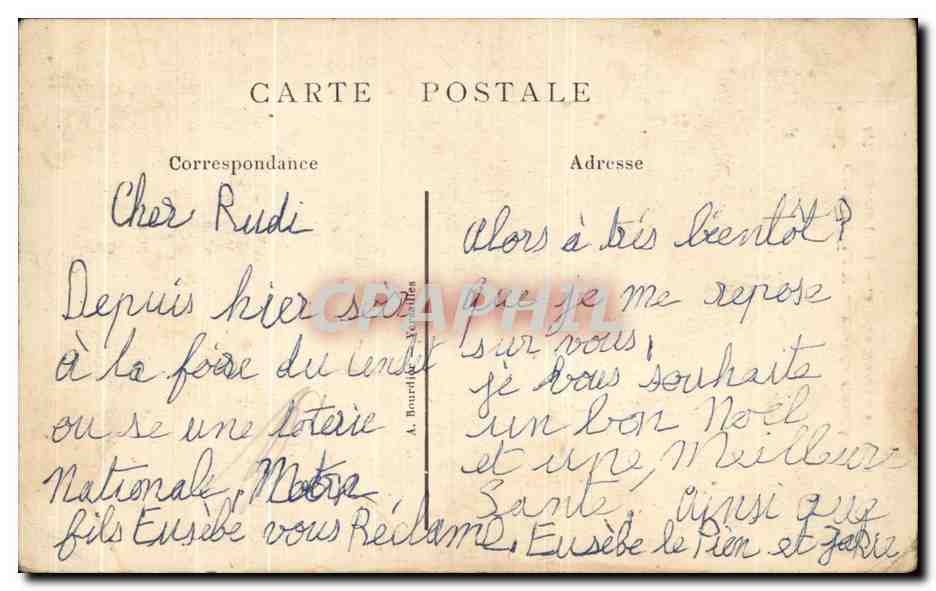 CARTE POSTALE
Correspondance
Cher Rudi
Depuis hier soir
à la foire du
ou se une loterie
Nationale,
fils Eusèbe vous Réclame,
A. Bourdier — Versailles
Adresse
Alors à trés bientôt?
que je me repose
sur vous,
je vous souhaite
un bon Noël
et une, Meilleure
Santé. Ainsi que
Eusèbe le Pien et
CPAPHIL